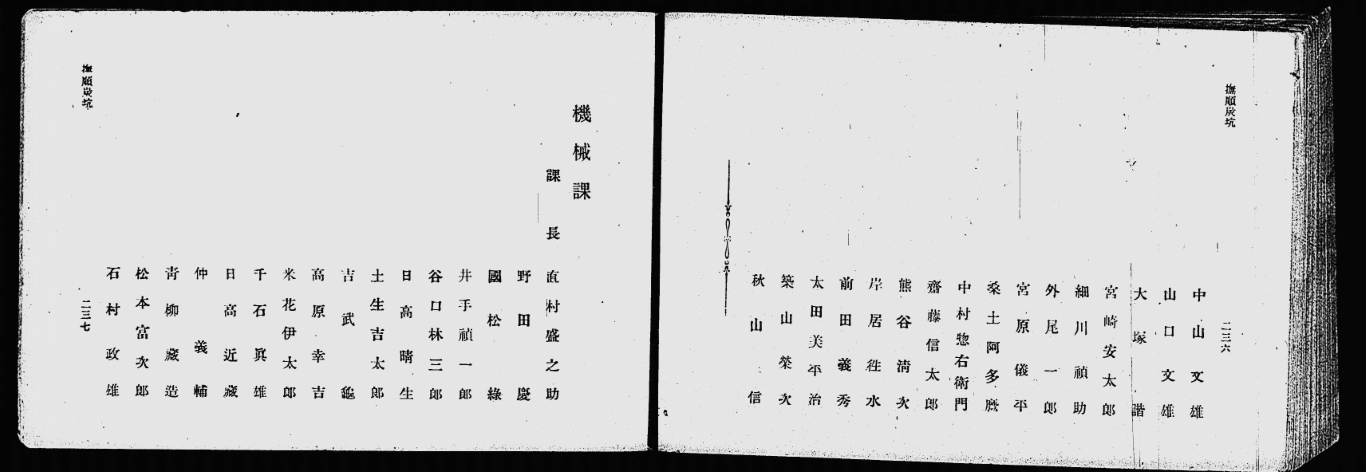 撫順炭坑
二三六
中山文雄
山口文雄
大塚諧
宮崎安太郎
細川禎助
外尾一郎
宮原儀平
桑土阿多麿
中村惣右衛門
齋藤信太郎
熊谷淸次
岸居徃水
前田義秀
太田美平治
築山榮次
秋山信
機械課
課長 直村盛之助
野田慶
國松綠
井手禎一郎
谷口林三郎
日高晴生
土生吉太郎
吉武龜
高原幸吉
米花伊太郎
千石眞雄
日高近藏
仲義輔
靑柳藏造
松本富次郎
石村政雄
撫順炭坑
二三七